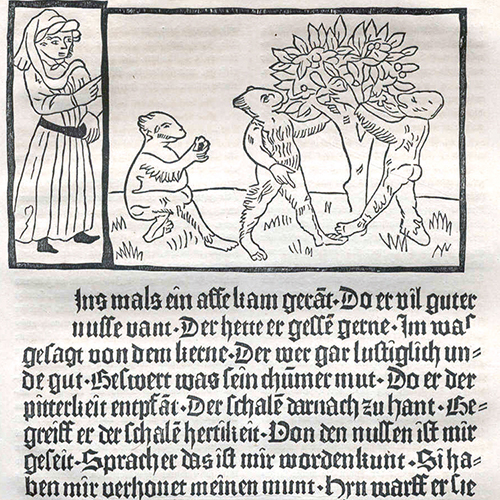 Ins mals ein affe kam gerāt·Do er vil guter
nusse vant·Der hette er gessē gerne·Im was
gesagt von dem kerne·Der wer gar lustiglich un=
de gut·Beswert was sein thūmer mut·Do er der
pitterkeit entpfāt·Der schalē darnach zu hant·Be=
greiff er der schalē hertikeit·Von den nussen ist mir
geseit·Sprach er das ist mir worden kunt·Si ha=
ben mir verhonet meinen munt·Hyn warff er sie